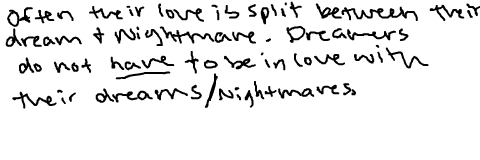 often their love is split between their
dream & Nightmare. Dreamers
do not have to be in love with
their dreams/Nightmares.